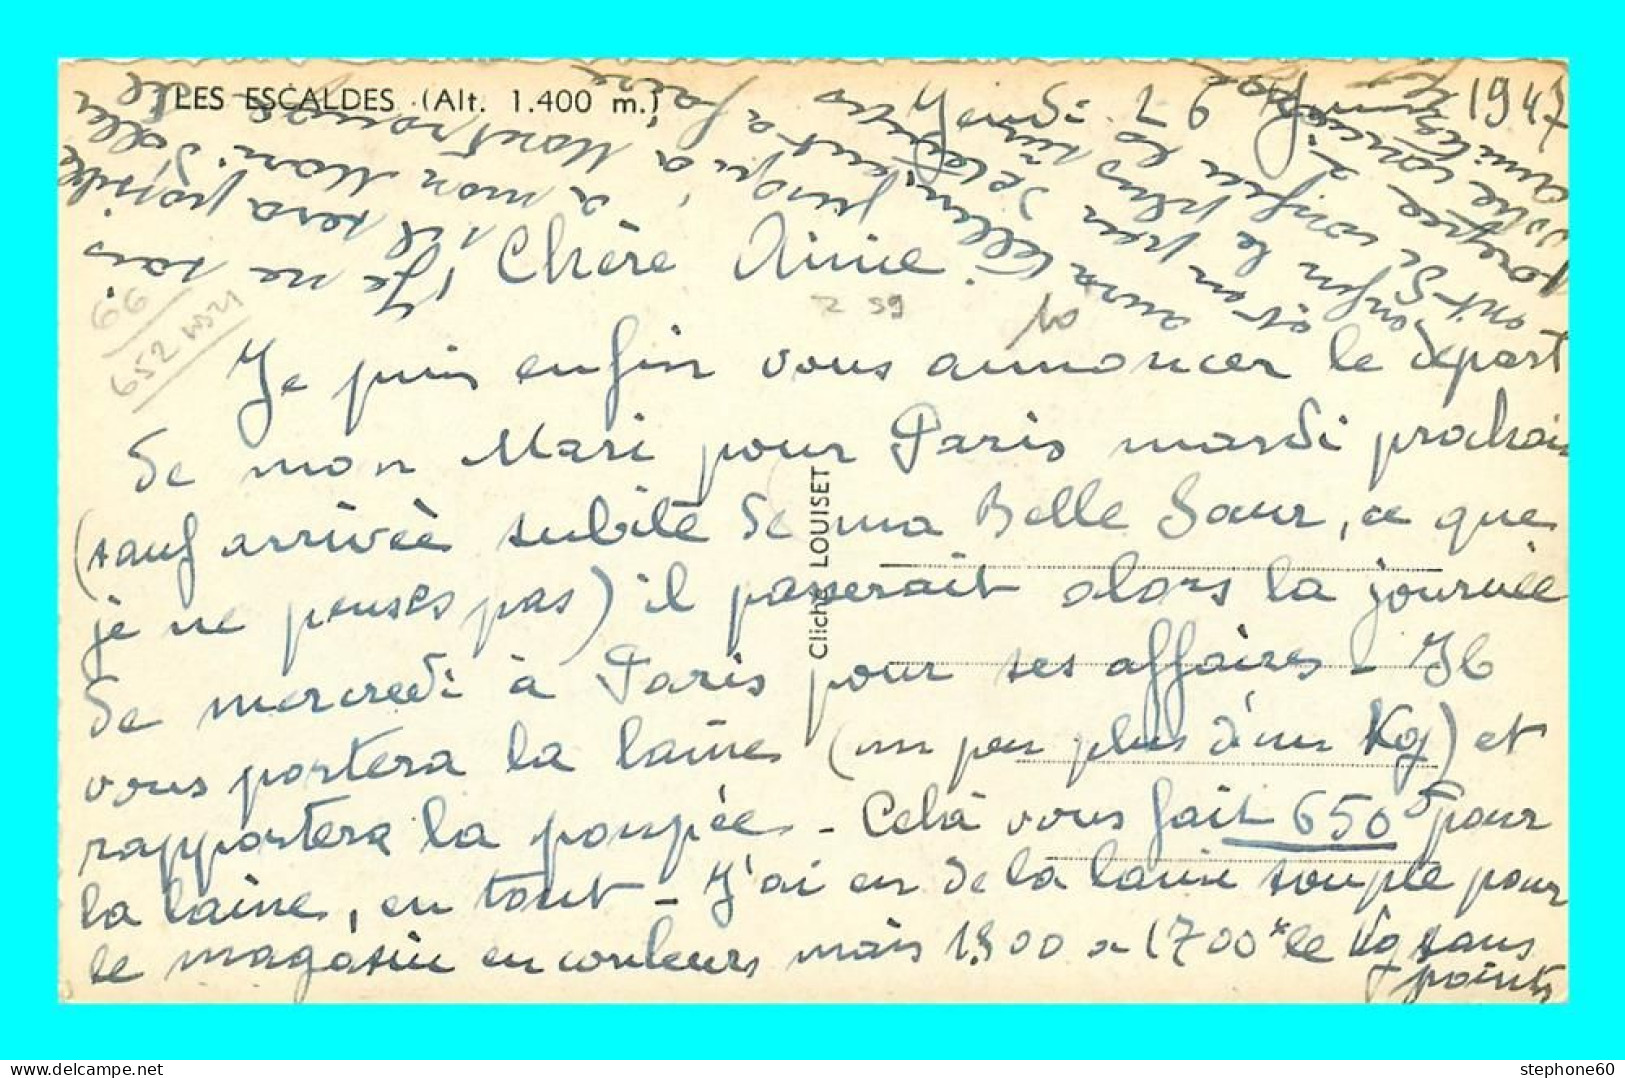 LES ESCALDES (Alt. 1.400 m.)
Jeudi 26 Juin 1947
Chère Amie
Je puis enfin vous annoncer le départ
de mon Mari pour Paris mardi prochain
(sauf arrivée subite de ma Belle Sœur, ce que
je ne penses pas) il passerait alors la journée
de mercredi à Paris pour ses affaires - Il
vous portera la laine (un peu plus d'un Kg) et
rapportera la poupée - Celà vous fait 650 F pour
la laine, en tout - J'ai eu de la laine souple pour
le magasin en couleurs mais 1.500 a 1700 F le Kg sans
points
Je ne sais
s'il sera possible
à mon Mari d'aller
jusqu'à Montrouge
Cliché LOUISET
66
652 W321
Z 39
10
stephone60